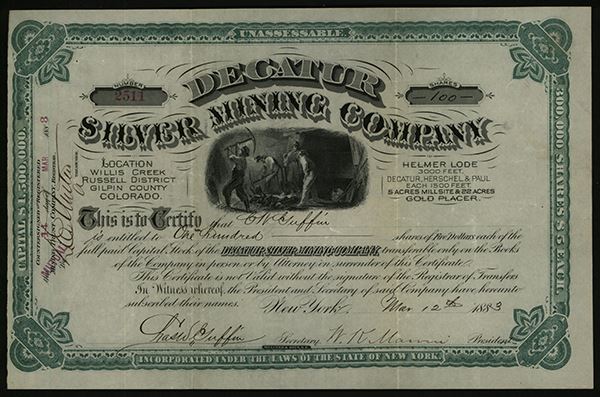 UNASSESSABLE.
NUMBER
2511
SHARES
100
DECATUR
SILVER MINING COMPANY
LOCATION
WILLIS CREEK
RUSSELL DISTRICT
GILPIN COUNTY
COLORADO.
HELMER LODE
3000 FEET.
DECATUR, HERSCHEL & PAUL
EACH 1500 FEET.
5 ACRES MILLSITE & 22 ACRES
GOLD PLACER.
CAPITAL $1,500,000.
300,000 SHARES $5 EACH.
COUNTERSIGNED & REGISTERED
MAR 188 3
This is to Certify that C W Guffin
is entitled to One Hundred shares of Five Dollars each of the
full paid Capital Stock of the DECATUR SILVER MINING COMPANY, transferable only on the Books
of the Company in person or by Attorney on surrender of this Certificate.
This Certificate is not Valid without the signature of the Registrar of Transfers
In Witness whereof, the President and Secretary of said Company have hereunto
subscribed their names.
New York, Mar 12th 1883
Guffin Secretary W. K. President
INCORPORATED UNDER THE LAWS OF THE STATE OF NEW YORK.